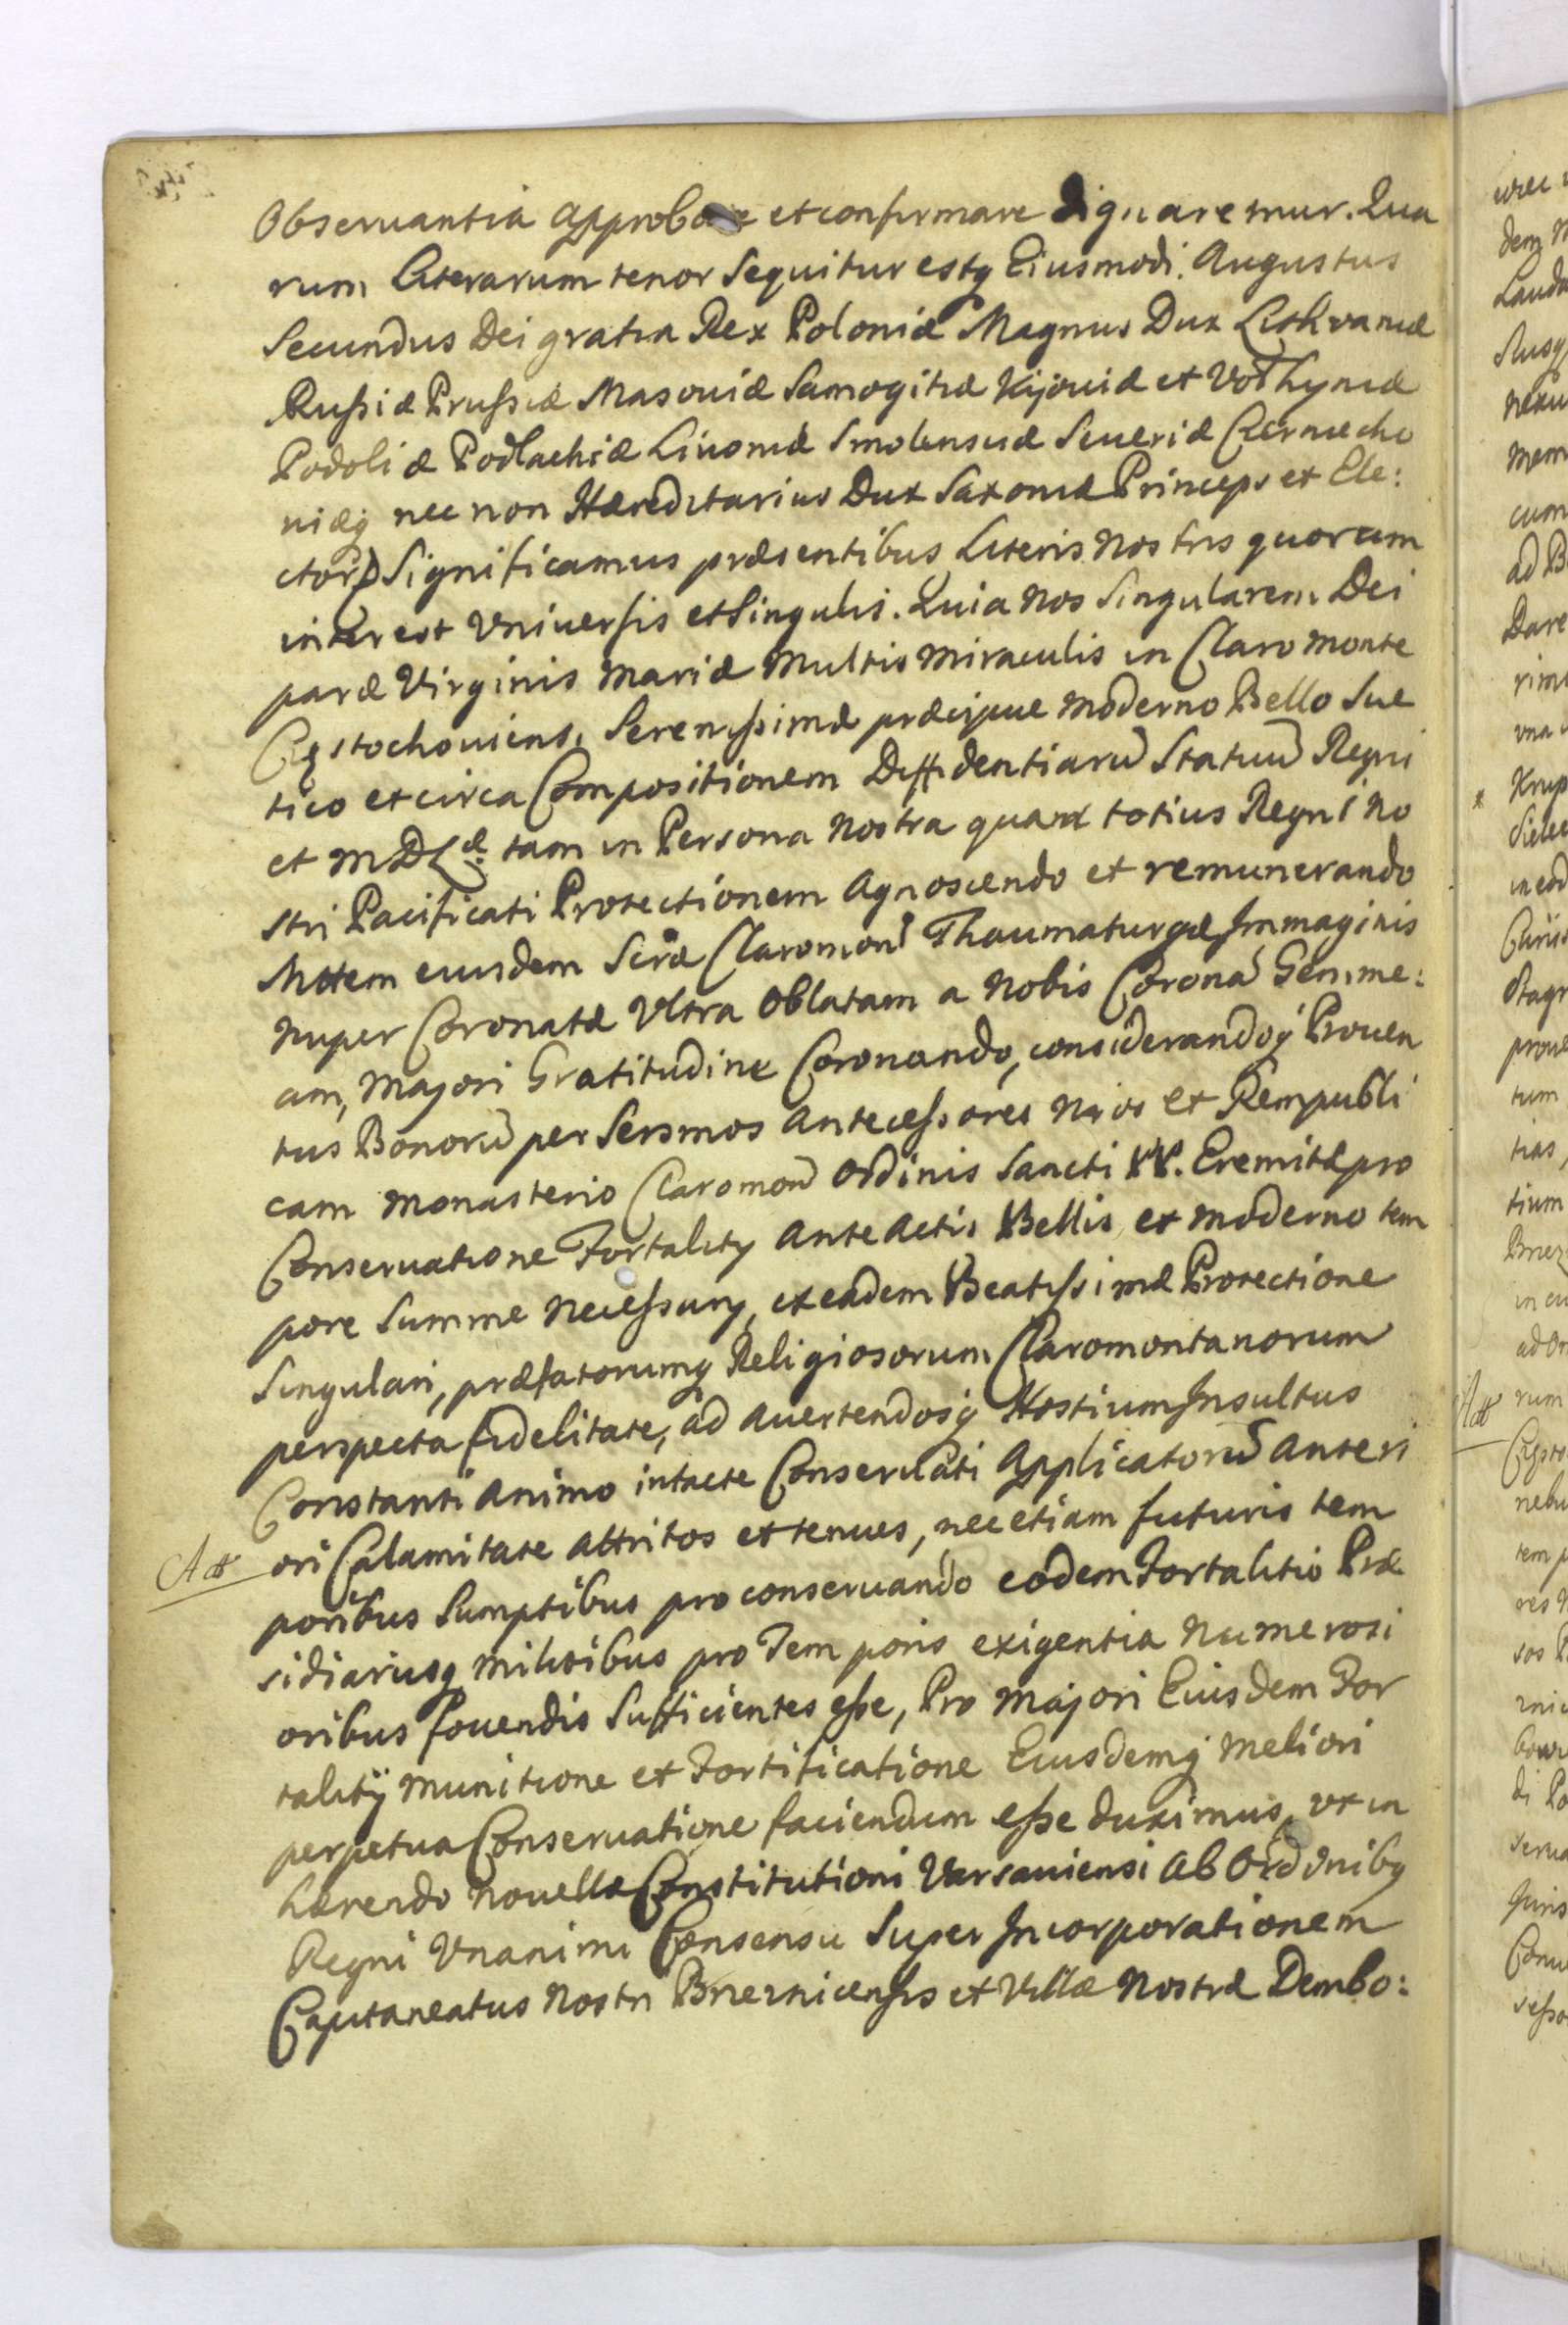 Observantia Approbare et confirmare dignaremur. Qua
rum Literarum tenor Sequitur estq Eiusmodi. Augustus
Secundus Dei gratia Rex Poloniæ Magnus Dux Lithvaniæ
Russiæ Prussiæ Masoviæ Samogitiæ Kijoviæ et Volhyniæ
Podoliæ Podlachiæ Livoniæ Smolensciæ Severiæ Czerniecho
viæq nec non Hæreditarius Dux Saxoniæ Princeps et Ele:
ctor) Significamus præsentibus Literis Nostris quorum
interest Universis et Singulis. Quia Nos Singularem Dei
paræ Virginis Mariæ Multis Miraculis in Claro Monte
Częstochoviens. Serenissimæ præcipue Moderno Bello Sue
tico et circa Compositionem Diffidentiarū Statuū Regni
et M D L æ. tam in Persona Nostra quam totius Regni No
stri Pacificati Protectionem Agnoscendo et remunerando
Mttem eiusdem Scræ Claromont Thaumaturgæ Immaginis
Nuper Coronatæ Ultra Oblatam a Nobis Coronā Gemme:
am, Majori Gratitudine Coronando, considerandoq Proven
tus Bonorū per Sersmos Antecessores Nros et Rempubli
cam Monasterio Claromon Ordinis Sancti Eremitæ pro
Conservatione Fortality Ante Actis Bellis et Moderno tem
pore Summe Necessary, ex eadem Beatissimæ Protectione
Singulari, præfatorumq Religiosorum Claromontanorum
perspecta fidelitate, ad Avertendosq Hostium Insultus
Constanti Animo intacte Conservati Applicatorū Anteri
ori Calamitate Attritos et tenues, nec etiam futuris tem
poribus Sumptibus pro conservando eodem Fortalitio Præ
sidiarijsq Militibus pro Temporis exigentia Numerosi
oribus fovendis Sufficientes esse, Pro Majori Eiusdem For
tality Munitione et Fortificatione Eiusdemq Meliori
perpetua Conservatione faciendum esse duximus, ut in
hærendo Novellæ Constitutioni Varsaviensi Ab Ordinibq
Regni Unanimi Consensu Super Incorporationem
Capitaneatus Nostri Brzeznicensis et Villæ Nostræ Dembo: